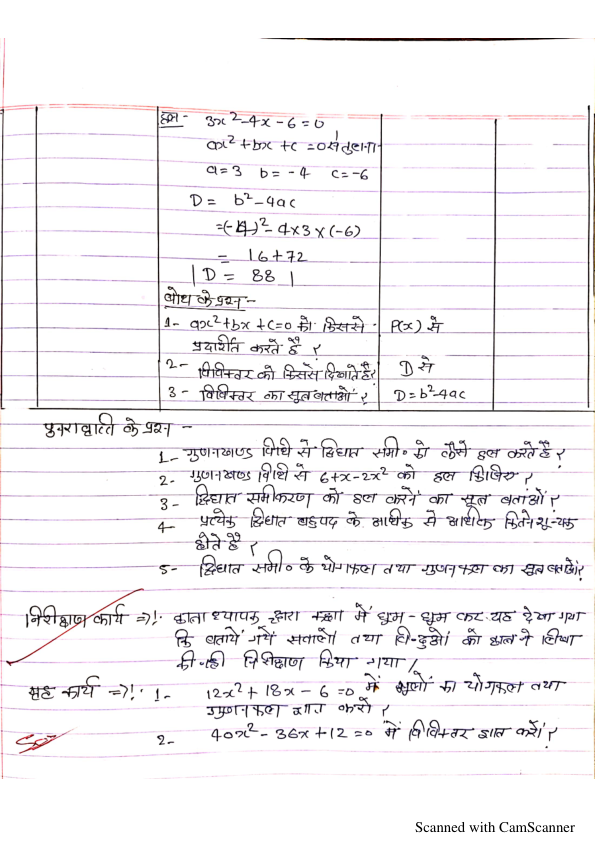 हल - 3x² - 4x - 6 = 0
ax² + bx + c = 0 से तुलना
a = 3 b = - 4 c = -6
D = b² - 4ac
= (-4)² - 4×3×(-6)
= 16 + 72
| D = 88 |
बोध के प्रश्न -
1- ax² + bx + c = 0 को किससे P(x) से
प्रदर्शित करते है ?
2- विविक्तर को किससे दिखाते है? D से
3- विविक्तर का सूत्र बताओं ? D = b²-4ac
पुनरावृत्ति के प्रश्न -
1- गुणनखण्ड विधि से द्विघात समी० को कैसे हल करते है ?
2- गुणनखण्ड विधि से 6+x-2x² को हल किजिए ?
3- द्विघात समीकरण को हल करने का सूत्र बताओं ?
4- प्रत्येक द्विघात बहुपद के अधिक से अधिक कितने शून्यक
होते है ?
5- द्विघात समी० के योगफल तथा गुणनफल का सूत्र बताओं?
निरीक्षण कार्य =>!- छाताध्यापक द्वारा कक्षा में घुम - घुम कर यह देखा गया
कि बताये गये सवालो तथा बिन्दुओं को छात्र ने लिखा
की नही निरीक्षण किया गया /
गृह कार्य =>!- 1- 12x² + 18x - 6 = 0 में मूलों का योगफल तथा
गुणनफल ज्ञात करों ?
2- 40x² - 36x + 12 = 0 में विविक्तर ज्ञात करों ?
Scanned with CamScanner